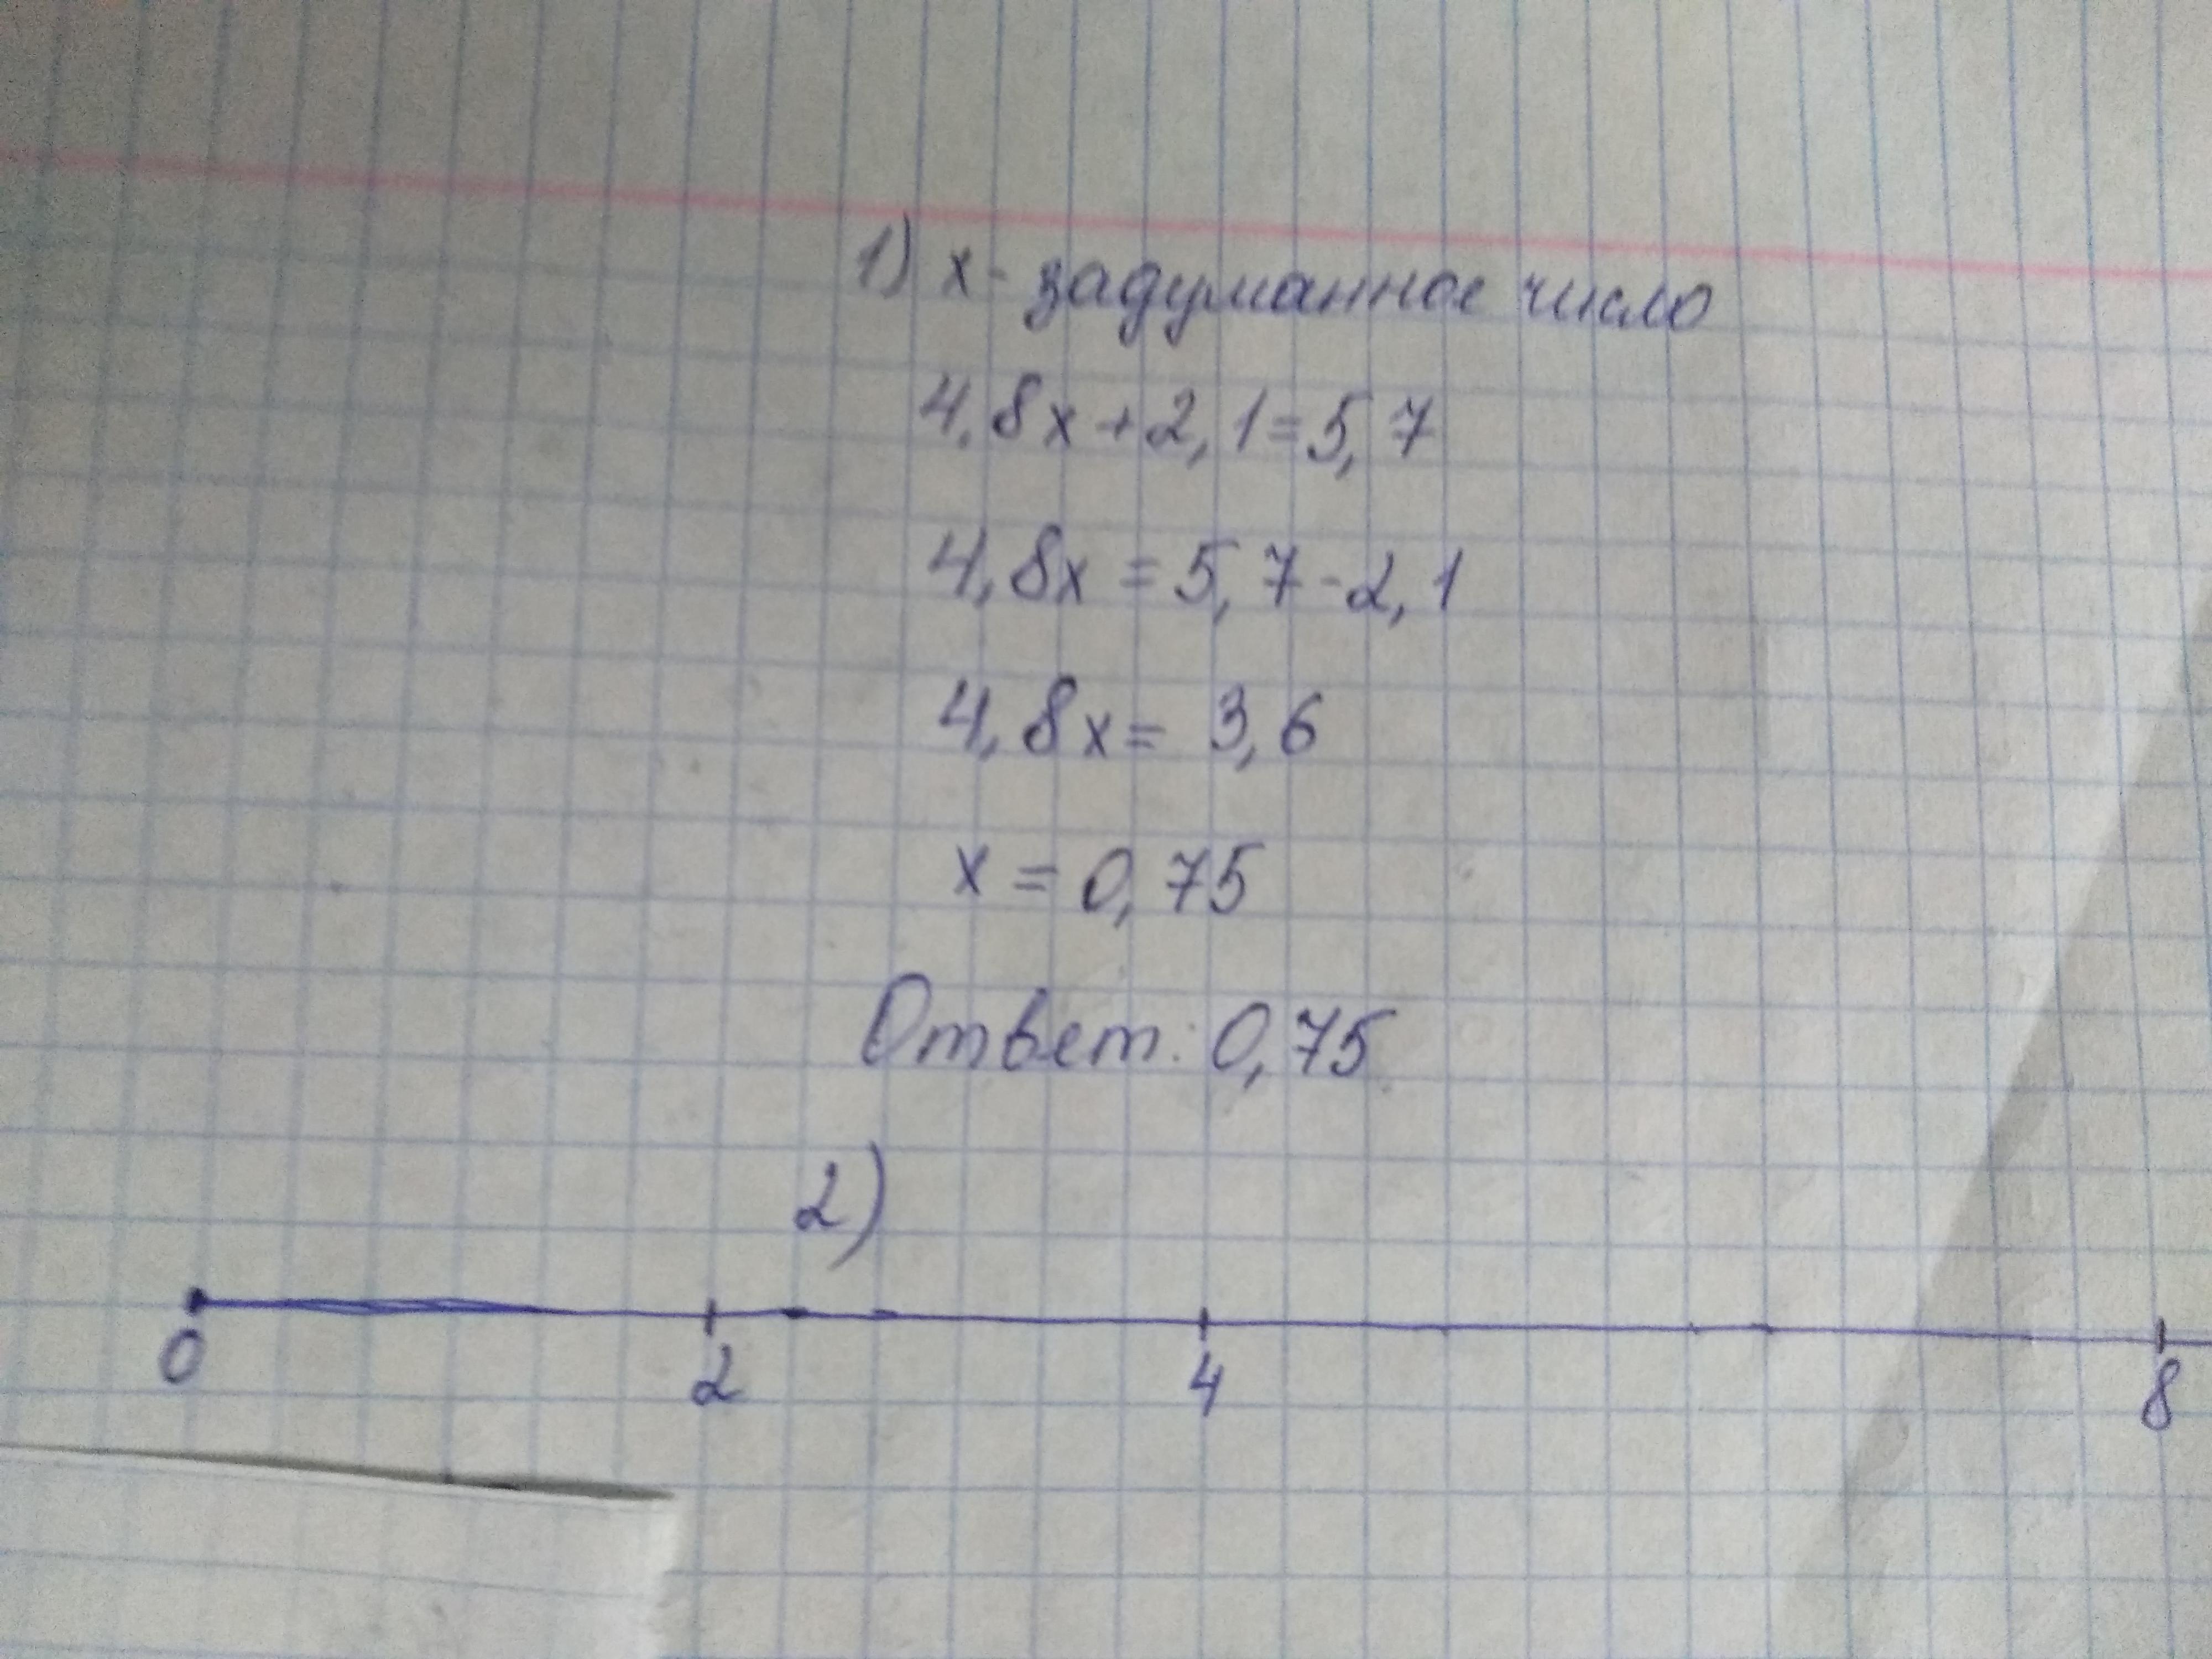 1) х - задуманное число
4,8х + 2,1 = 5,7
4,8х = 5,7 - 2,1
4,8х = 3,6
х = 0,75
Ответ: 0,75.
2)
0 2 4 8